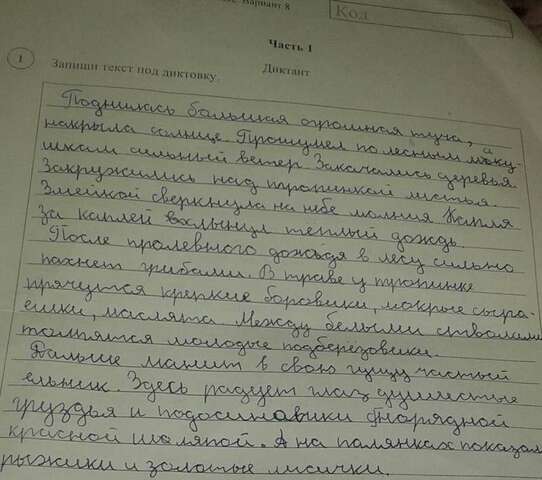 Вариант 8
Код
Часть 1
1
Запиши текст под диктовку.
Диктант
Поднилась большая огромная туча, а
накрыла солнце. Прошумел по лесным маку-
шкам сильный ветер. Закачались деревья.
Закружились над тропинкай листья.
Змейкой сверкнула на небе молния. Капля
за каплей вхлынул теплый дождь.
После пролевного дождя в лесу сильно
пахнет грибами. В траве у тропинке
прячутся крепкие боровики, мокрые сыра-
ешки, маслята. Между белыми стволами
толпятся молодые подберезовики.
Дальше манит в свою гущу частый
ельник. Здесь радует глаз душистые
груздья и подосиновики с нарядной
красной шляпой. А на палянках показал
рыжики и золотые лисички.